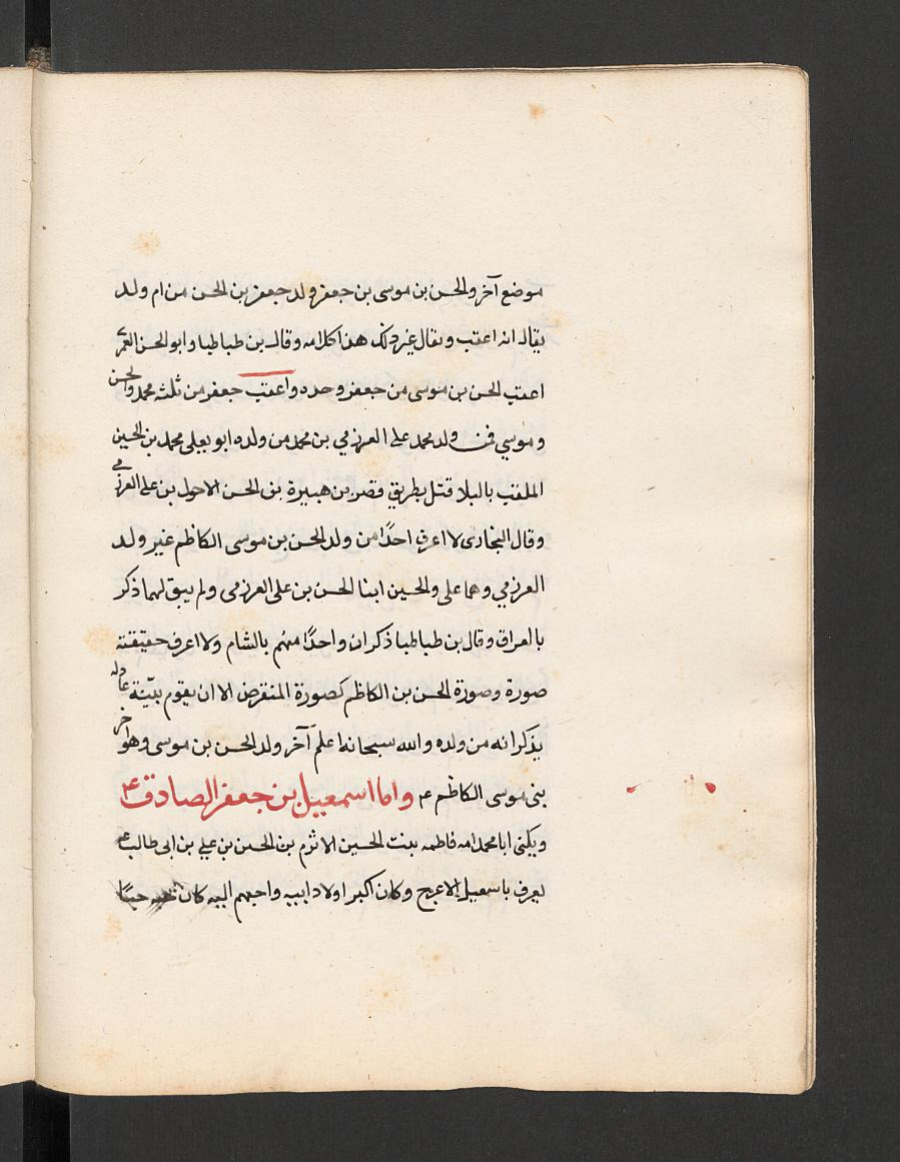 موضع آخر والحسن بن موسى بن جعفر ولد جعفر بن الحسن من ام ولد
يقال انه اعقب ويقال غير ذلك هذا كلامه وقال بن طباطبا وابو الحسن العمرى
اعقب الحسن بن موسى من جعفر وحده واعقب جعفر من ثلثه محمد والحسن
وموسى فمن ولد محمد على العرزمي بن محمد من ولده ابو يعلى محمد بن الحسين
الملقب بالبلا قتل بطريق قصر بن هبيرة بن الحسن الاحول بن على العرزمي
وقال البخارى لا اعرف احدًا من ولد الحسن بن موسى الكاظم غير ولد
العرزمي وهما على والحسين ابنا الحسن بن على العرزمى ولم يبق لهما ذكر
بالعراق وقال بن طباطبا ذكر ان واحدًا منهم بالشام ولا اعرف حقيقته
صورة وصورة الحسن بن الكاظم كصورة المنقرض الا ان يقوم بيّنة عادله
يذكر انه من ولده والله سبحانه اعلم آخر ولد الحسن بن موسى وهو اخر
بنى موسى الكاظم ع واما اسمعيل بن جعفر الصادق ع
ويكنى ابا محمد امه فاطمه بنت الحسين الاثرم بن الحسن بن علي بن ابى طالب ع
يعرف باسمعيل الاعرج وكان اكبر اولاد ابيه واحبهم اليه كان حبًا